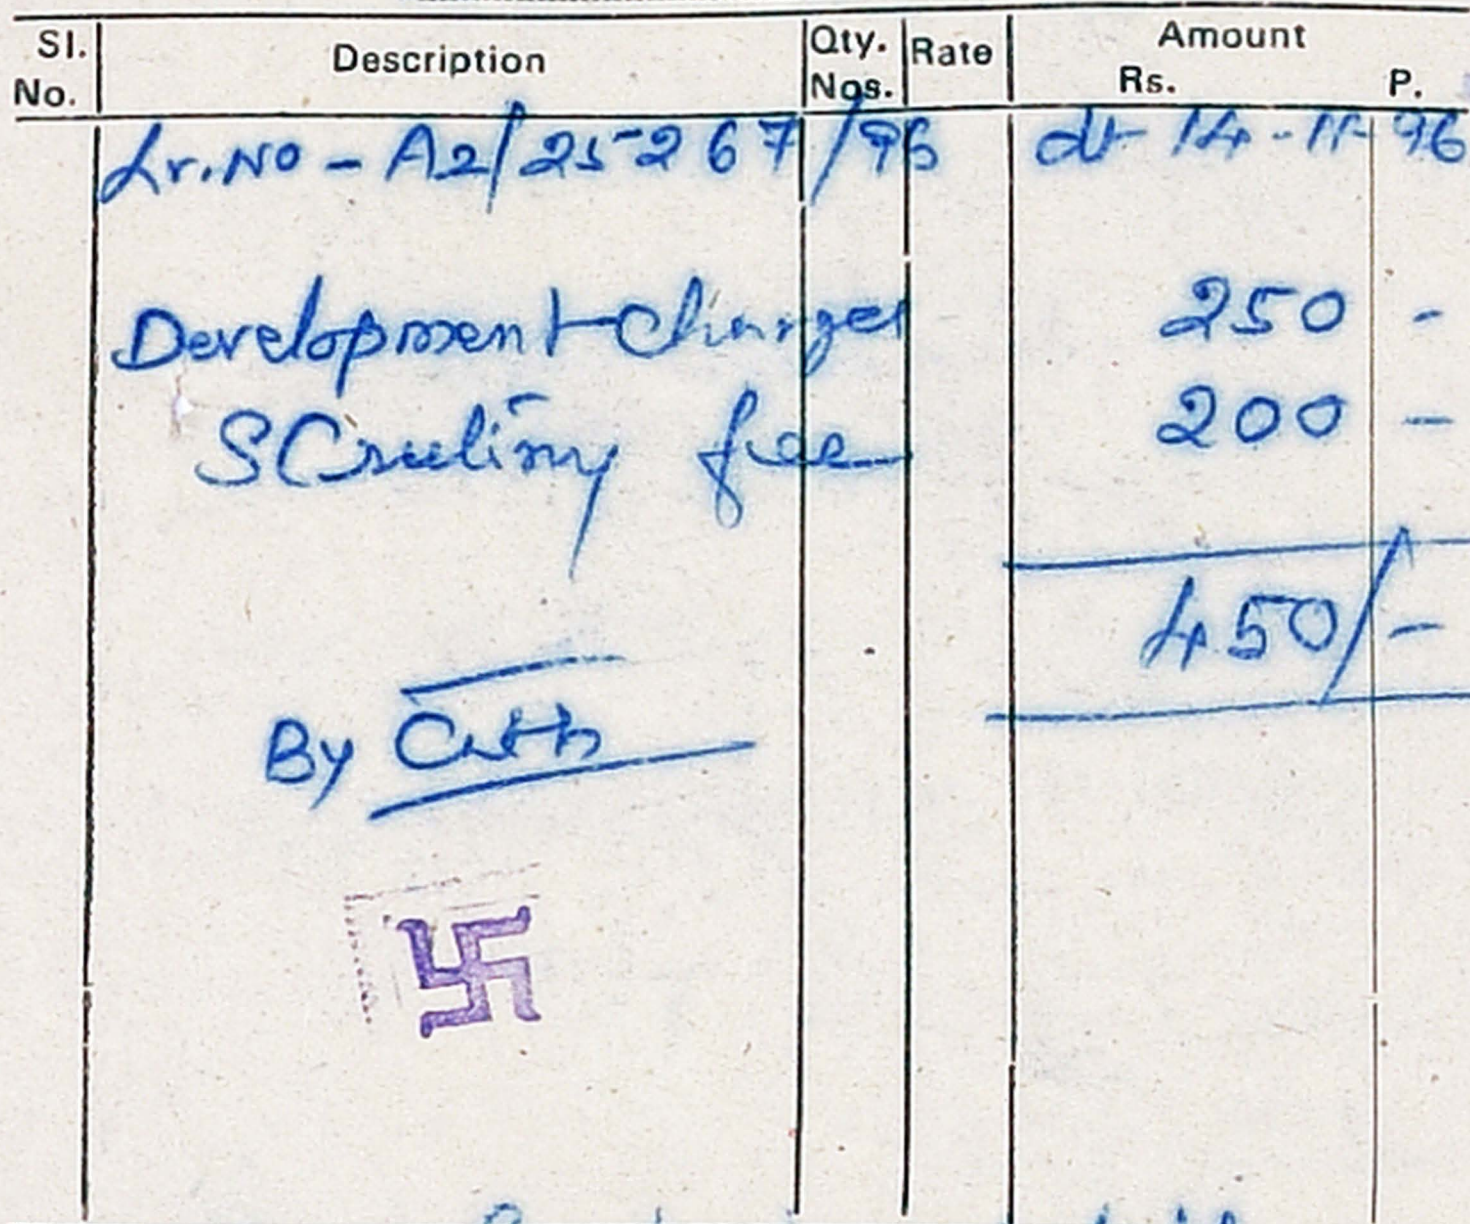 Sl. No. Description Qty. Nos. Rate Amount Rs. P.
Lr. No - A2/25267/96 dt 14-11-96
Development Charges 250 -
SCrutiny fee 200 -
450/-
By Cash